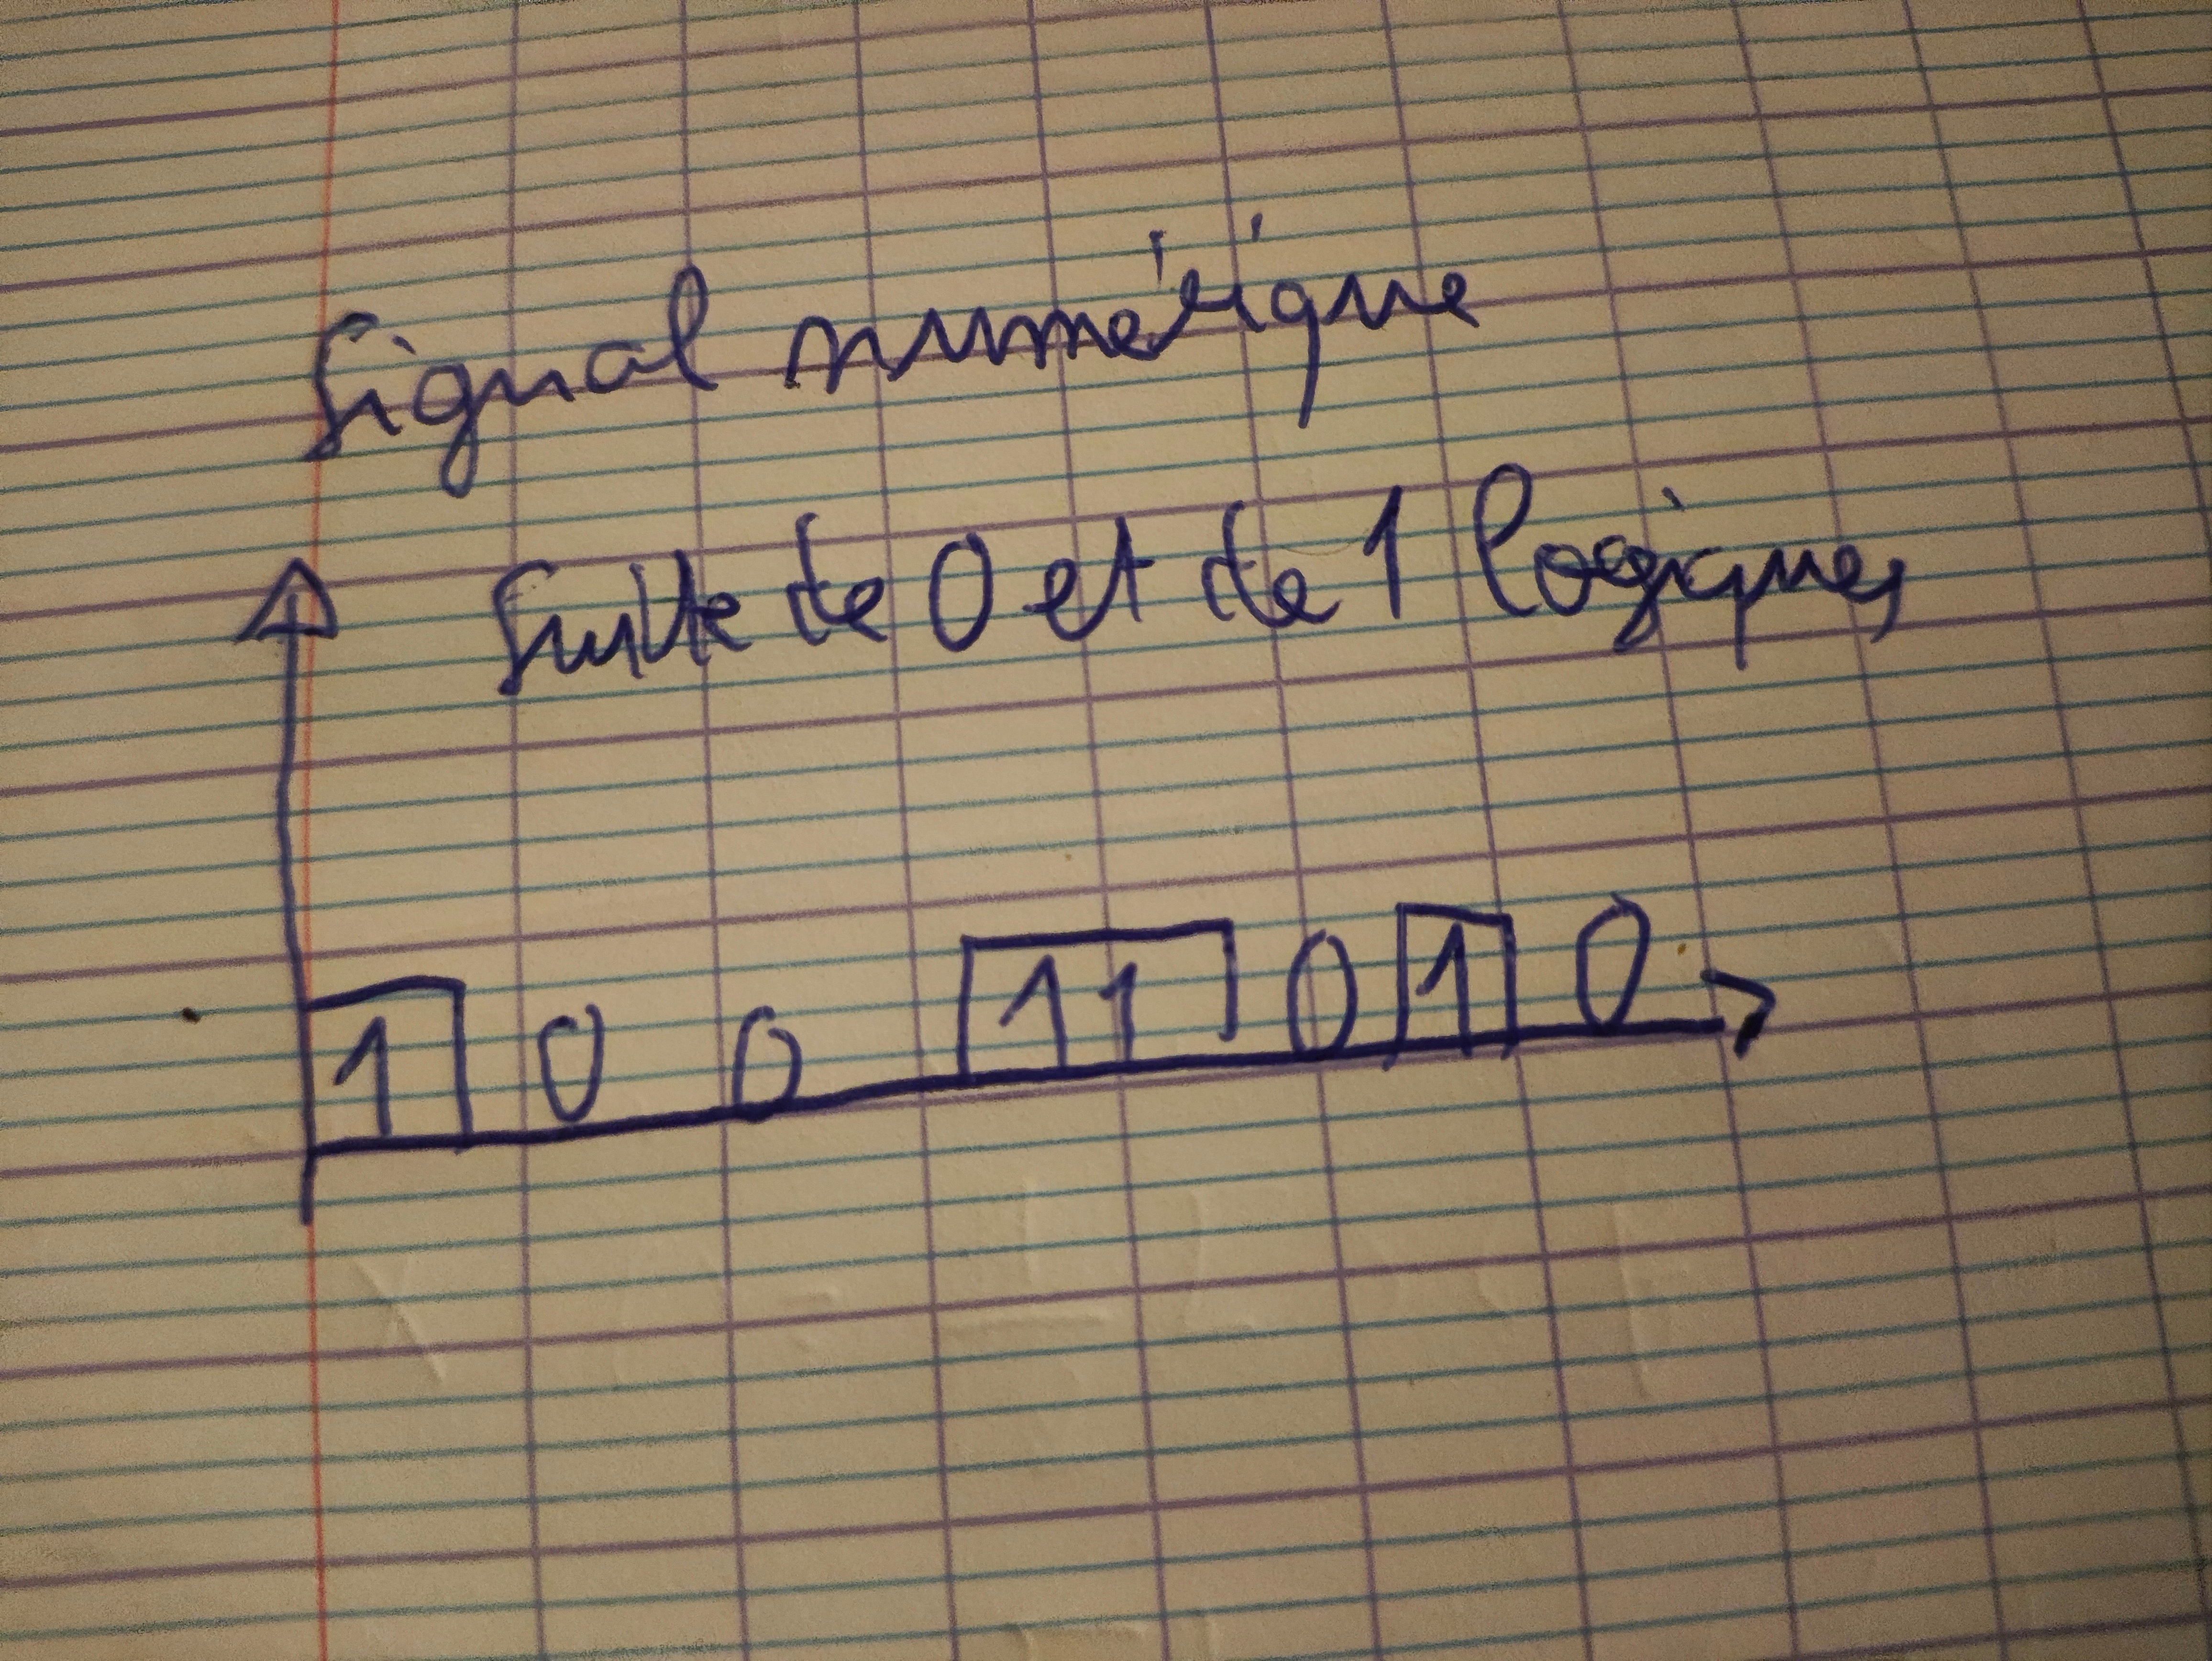 Signal numérique
Suite de 0 et de 1 logiques
1 0 0 1 1 0 1 0